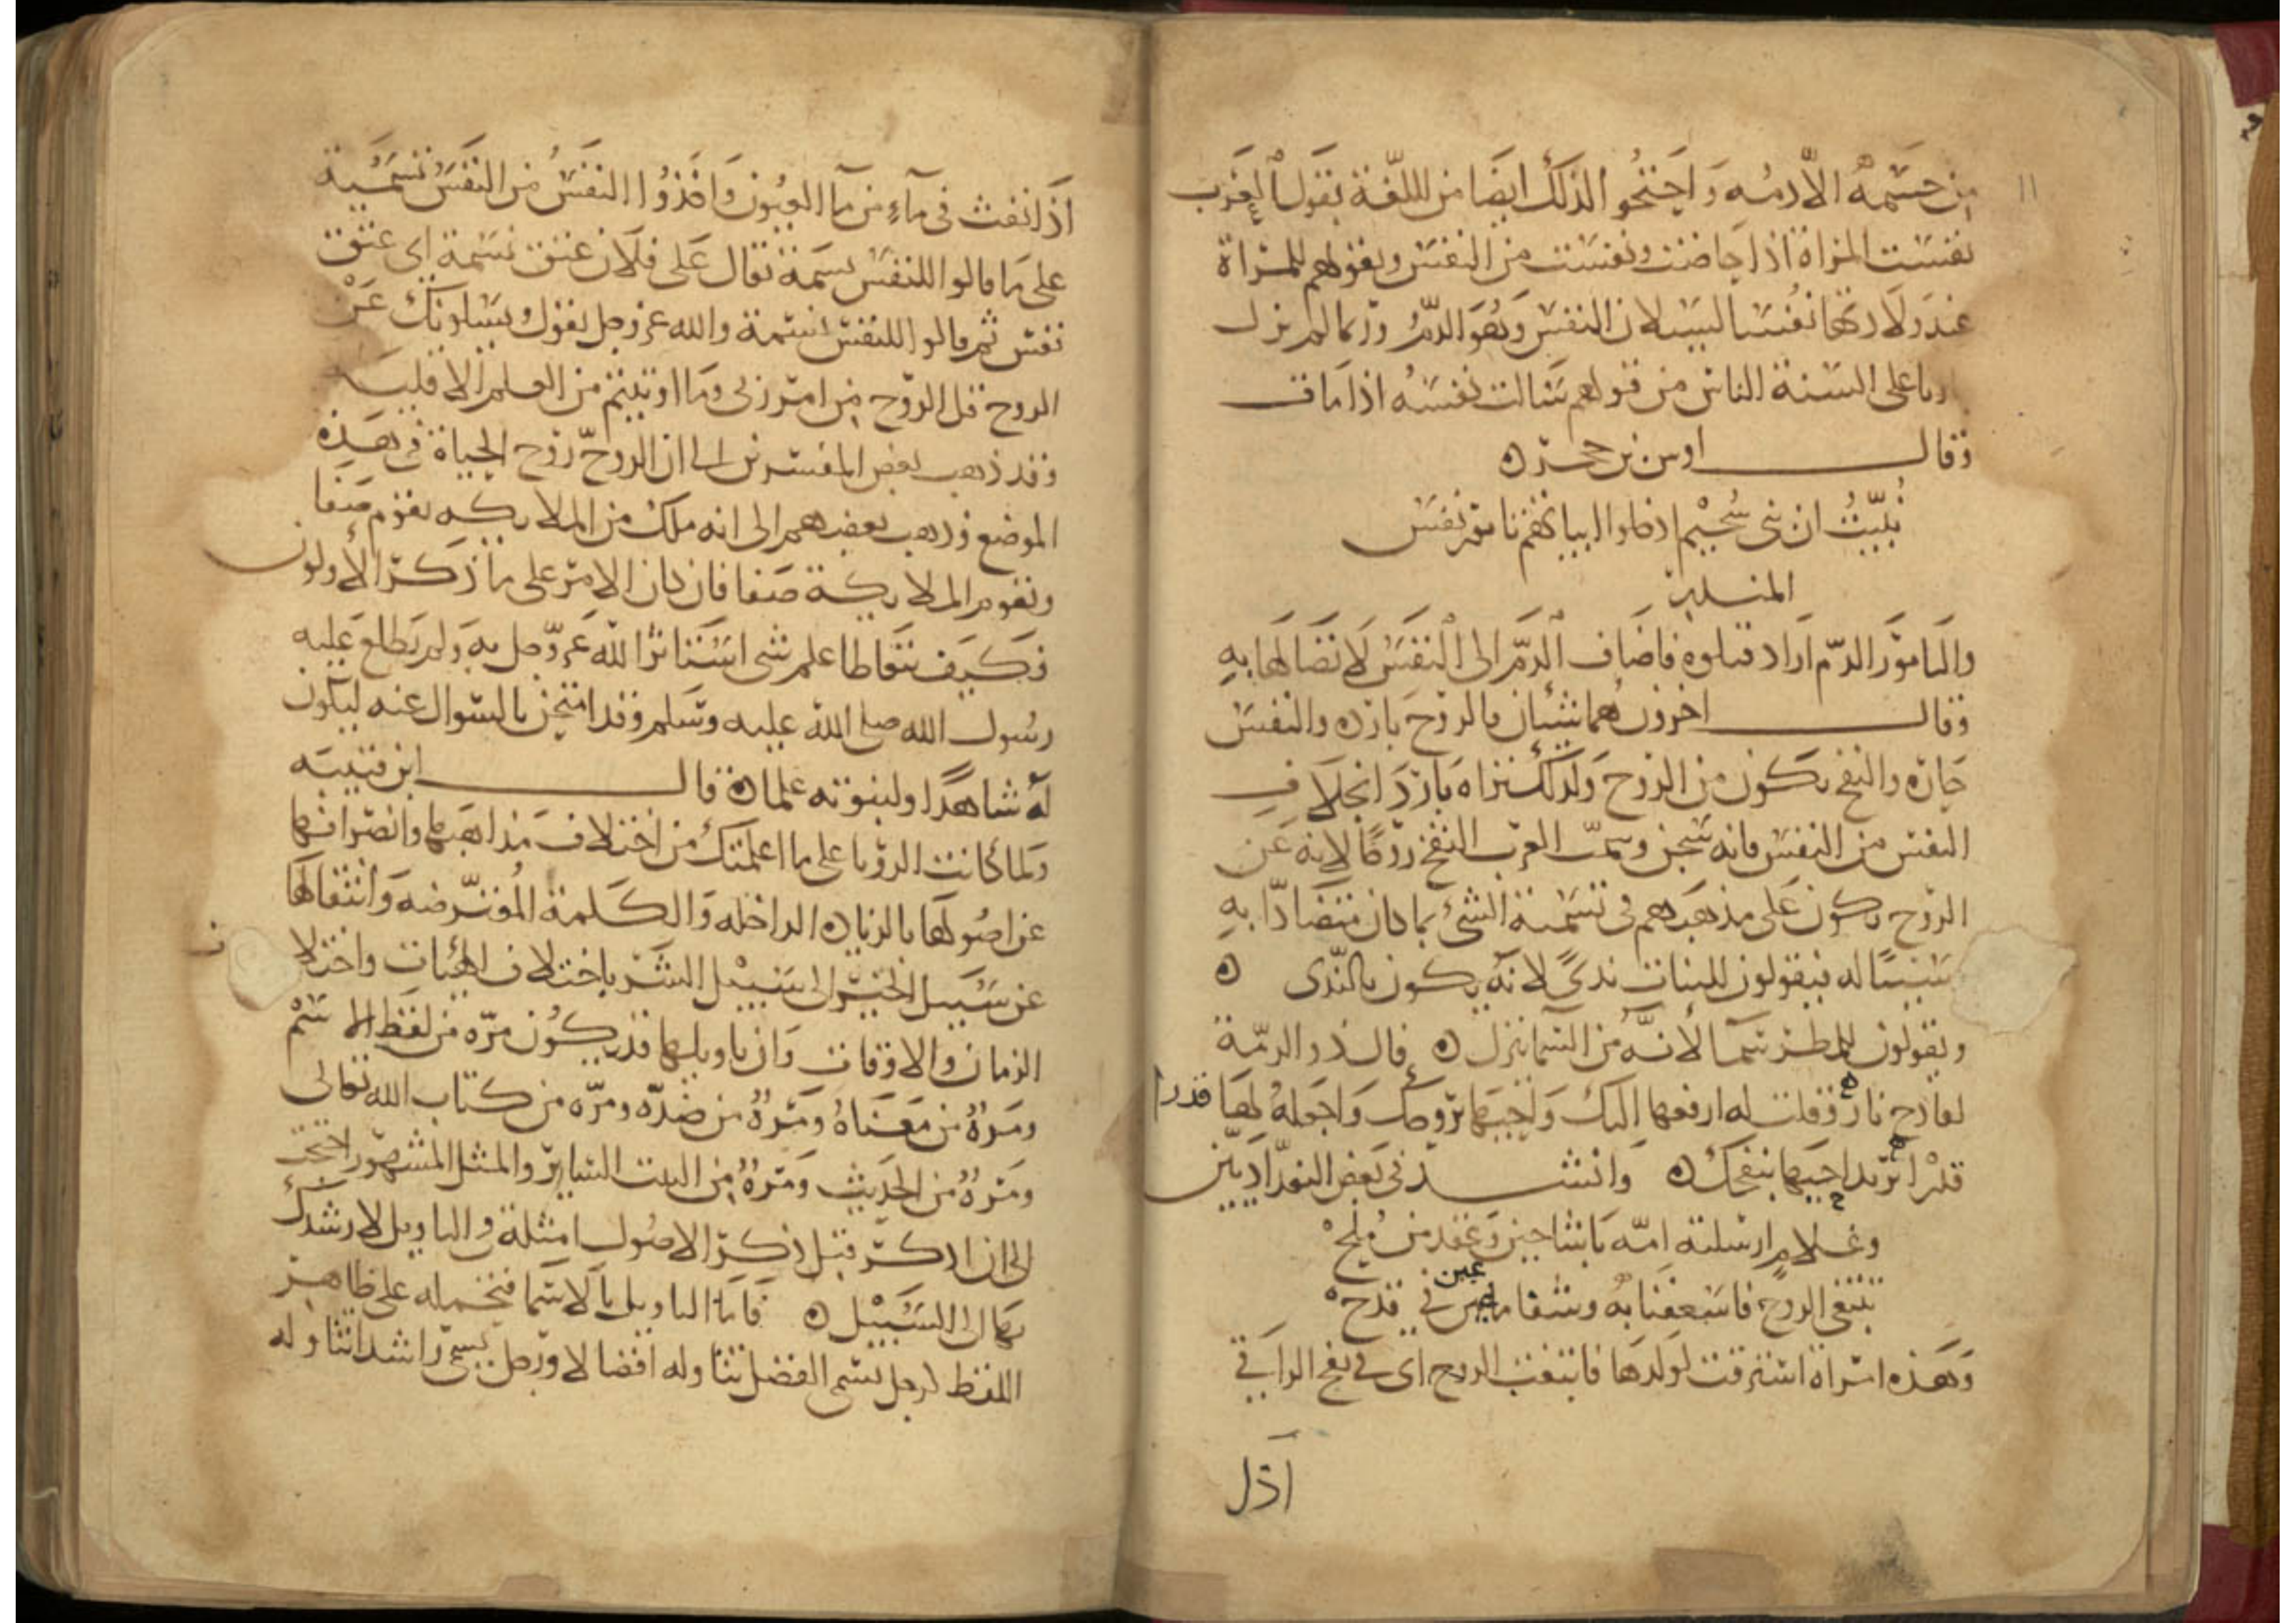 ١١
من جسمه الا دمه واحتجوا لذلك ايضا من اللغة بقول العرب
نفست المراة اذا حاضت ونفست من النفس وبقولهم للمراة
عند ولادتها نفسا لسيلان النفس وهو الدم وربما لم نزل
رنا على السنة الناس من قولهم سالت نفسه اذا مات
وقال اوس بن حجر ه
نبيت ان بني سحيم ادخلوا ابياتهم تامور نفس
المنذر
والتامور الدم اراد قتلوه فاضاف الدم الى النفس لاتصالها به
وقال اخرون هما شيان فالروح باردة والنفس
حارة والنفخ يكون من الروح ولذلك نراه باردا بخلاف
النفس من النفس فانه سخن وسمت العرب النفخ روحا لانه عن
الروح يكون على مذهبهم في تسمية الشئ بما كان متصادا به
سببا له فيقولون للنبات ندى لانه يكون بالندى ه
ويقولون للمطر سما لانه من السما ينزل ه قال ذو الرمة
لقادح نار فقلت له ارفعها اليك واحيها بروحك واجعله لها قدرا
يريد احيها بنفخك ه وانشد في بعض البغداديين
وغلام ارسلته امه باشاحين وعقد من ملح
تبتغي الروح فاسعفنا به وشفا ماعين في قدح
عين
وهذه امراة استرقت لولدها فابتغت الروح اى في نفخ الراقي
اذا
اذا نفث في ماء من ما العيون واخذوا النفس من النفس تسمية
على ما قالوا للنفس نسمة يقال على فلان عتق نسمة اى عتق
نفس ثم قالوا للنفس نسمة والله عز وجل يقول ويسلونك عن
الروح قل الروح من امر ربى وما اوتيتم من العلم الا قليلا
وقد ذهب بعض المفسرين الى ان الروح روح الحياة في هذه
الموضع وذهب بعضهم الى انه ملك من الملايكه يقوم صفا
وتقوم الملايكة صفا فان كان الامر على ما ذكر الاولون
فكيف نتعاطا علم شى استاثر الله عز وجل به ولم يطلع عليه
رسول الله صلى الله عليه وسلم وقد امتحن بالسوال عنه ليكون
له شاهدا ولنبوته علما ه قال ابن قتيبه
ولما كانت الرويا على ما اعلمتك من اختلاف مذاهبها وانصرافها
عن اصولها بالزيادة الداخله والكلمة المعترضه وانتقالها
عن سبيل الخير الى سبيل الشر باختلاف الهيات واختلا
ف
الزمان والاوقات وان تاويلها قد يكون مره من لفظ الاسم
ومرة من معناه ومرة من ضده ومره من كتاب الله تعالى
ومرة من الحديث ومرة من البيت الساير والمثل المشهور احتجت
الى ان اذكر قبل ذكر الاصول امثلة في التاويل لارشدك
بها الى السبيل ه فاما التاويل بالاسما فتحمله على ظاهر
اللفظ لرجل يسمى الفضل تتاوله افضالا ورجل يسمى راشد انتاوله